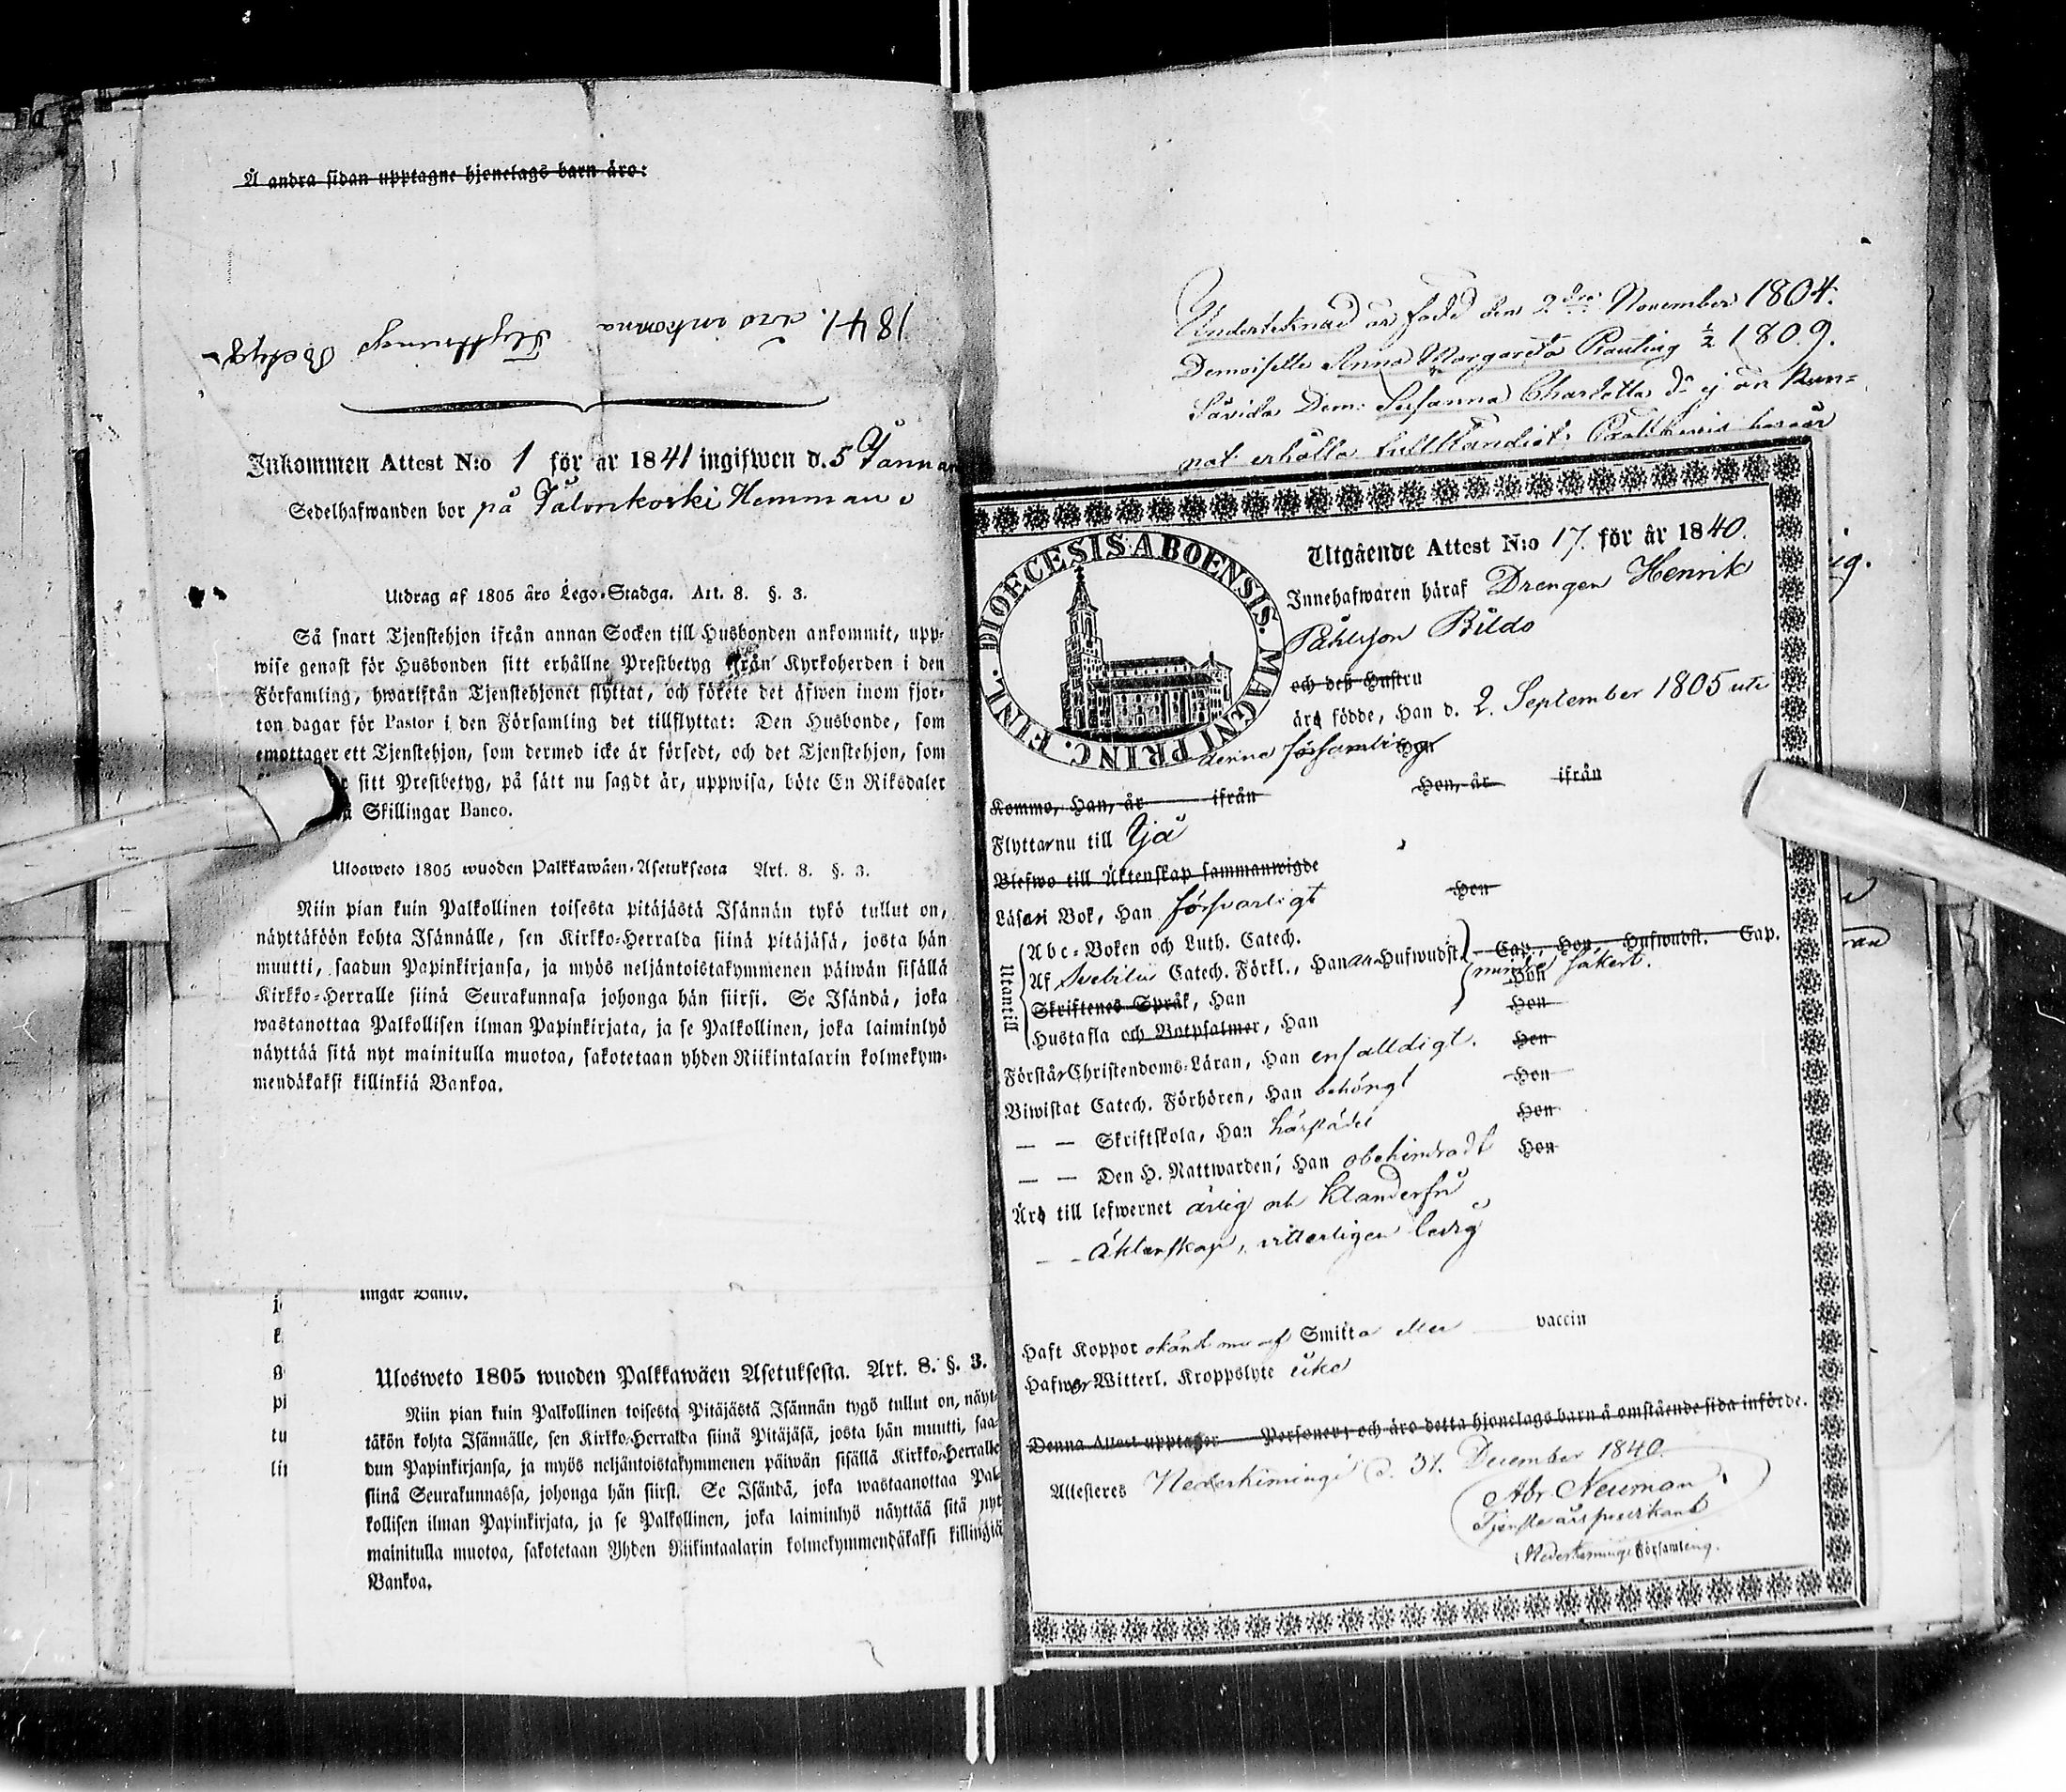 Å andra sidan upptagne hjonelags barn äro:
1841. års inkomna Flyttnings Betyg
Inkommen Attest N:o 1 för år 1841 ingifwen d. 5 Januar
Sedelhafwanden bor på Jälonkoski Hemman
Utdrag af 1805 års Lego-Stadga. Art. 8. §. 3.
Så snart Tjenstehjon ifrån annan Socken till Husbonden ankommit, upp-
wise genast för Husbonden sitt erhållne Prestbetyg ifrån Kyrkoherden i den
Församling, hwarifrån Tjenstehjonet flyttat, och förete det äfwen inom fjor-
ton dagar för Pastor i den Församling det tillflyttat: Den Husbonde, som
emottager ett Tjenstehjon, som dermed icke är försedt, och det Tjenstehjon, som
sitt Prestbetyg, på sätt nu sagdt är, uppwisa, böte En Riksdaler
Skillingar Banco.
Ulosweto 1805 wuoden Palkkawäen-Asetuksesta Art. 8. §. 3.
Niin pian kuin Palkollinen toisesta pitäjästä Isännän tykö tullut on,
näyttäköön kohta Isännälle, sen Kirkko-Herralda siinä pitäjäsä, josta hän
muutti, saadun Papinkirjansa, ja myös neljäntoistakymmenen päiwän sisällä
Kirkko-Herralle siinä Seurakunnasa johonga hän siirsi. Se Isändä, joka
wastanottaa Palkollisen ilman Papinkirjata, ja se Palkollinen, joka laiminlyö
näyttää sitä nyt mainitulla muotoa, sakotetaan yhden Riikintalarin kolmekym-
mendäkaksi killinkiä Bankoa.
ingar Banco.
Ulosweto 1805 wuoden Palkkawäen Asetuksesta. Art. 8. §. 3.
Niin pian kuin Palkollinen toisesta Pitäjästä Isännän tygö tullut on, näyt-
täkön kohta Isännälle, sen Kirkko-Herralda siinä Pitäjäsä, josta hän muutti, saa-
dun Papinkirjansa, ja myös neljäntoistakymmenen päiwän sisällä Kirkko-Herralle
siinä Seurakunnassa, johonga hän siirsi. Se Isändä, joka wastaanottaa Pal-
kollisen ilman Papinkirjata, ja se Palkollinen, joka laiminlyö näyttää sitä nyt
mainitulla muotoa, sakotetaan Yhden Riikintaalarin kolmekymmendäkaksi killingiä
Bankoa.
Underteknad är född den 2dra November 1804.
Demoiselle Anna Margareta Rauting ½ 1809.
Såvida Dem: Susanna Charlotta ej än kun-
nat erhålla fullständigt
DIOECESIS ABOENSIS. MAGNI PRINC. FINL.
Utgående Attest N:o 17. för år 1840.
Innehafwaren häraf Drengen Henrik
Påhlsson Bildo
och deß Hustru
äro födde, Han d. 2. September 1805 uti
denna församling Hon
Komme, Han, år ifrån Hon, år ifrån
Flyttar nu till Ijå
Blefwo till Äktenskap sammanwigde
Läser i Bok, Han försvarligt Hon
Utantill
Abc-Boken och Luth. Catech.
Af Svebilii Catech. Förkl., Han Hufwudst. Cap., Hon Hufwudst. Cap.
mindre säkert.
Skriftenes Språk, Han Hon
Hustafla och Botpsalmer, Han Hon
Förstår Christendoms-Läran, Han enfalldigt. Hon
Biwistat Catech. Förhören, Han behörigt Hon
— — Skriftskola, Han härstädes Hon
— — Den H. Nattwarden, Han obehindradt Hon
Äro till lefwernet ärlig och klanderfri
— — äktenskap, vitterligen ledig
Haft Koppor okändt om af Smitta eller vaccin
Hafwer Witterl. Kroppslyte icke
Denna Attest upptager Personer; och äro detta hjonelags barn å omstående sida införde.
Attesteres Nederkimingi d. 31. December 1840.
Abr. Neuman
Tjenste års predikant
Nederkimingi Församling.